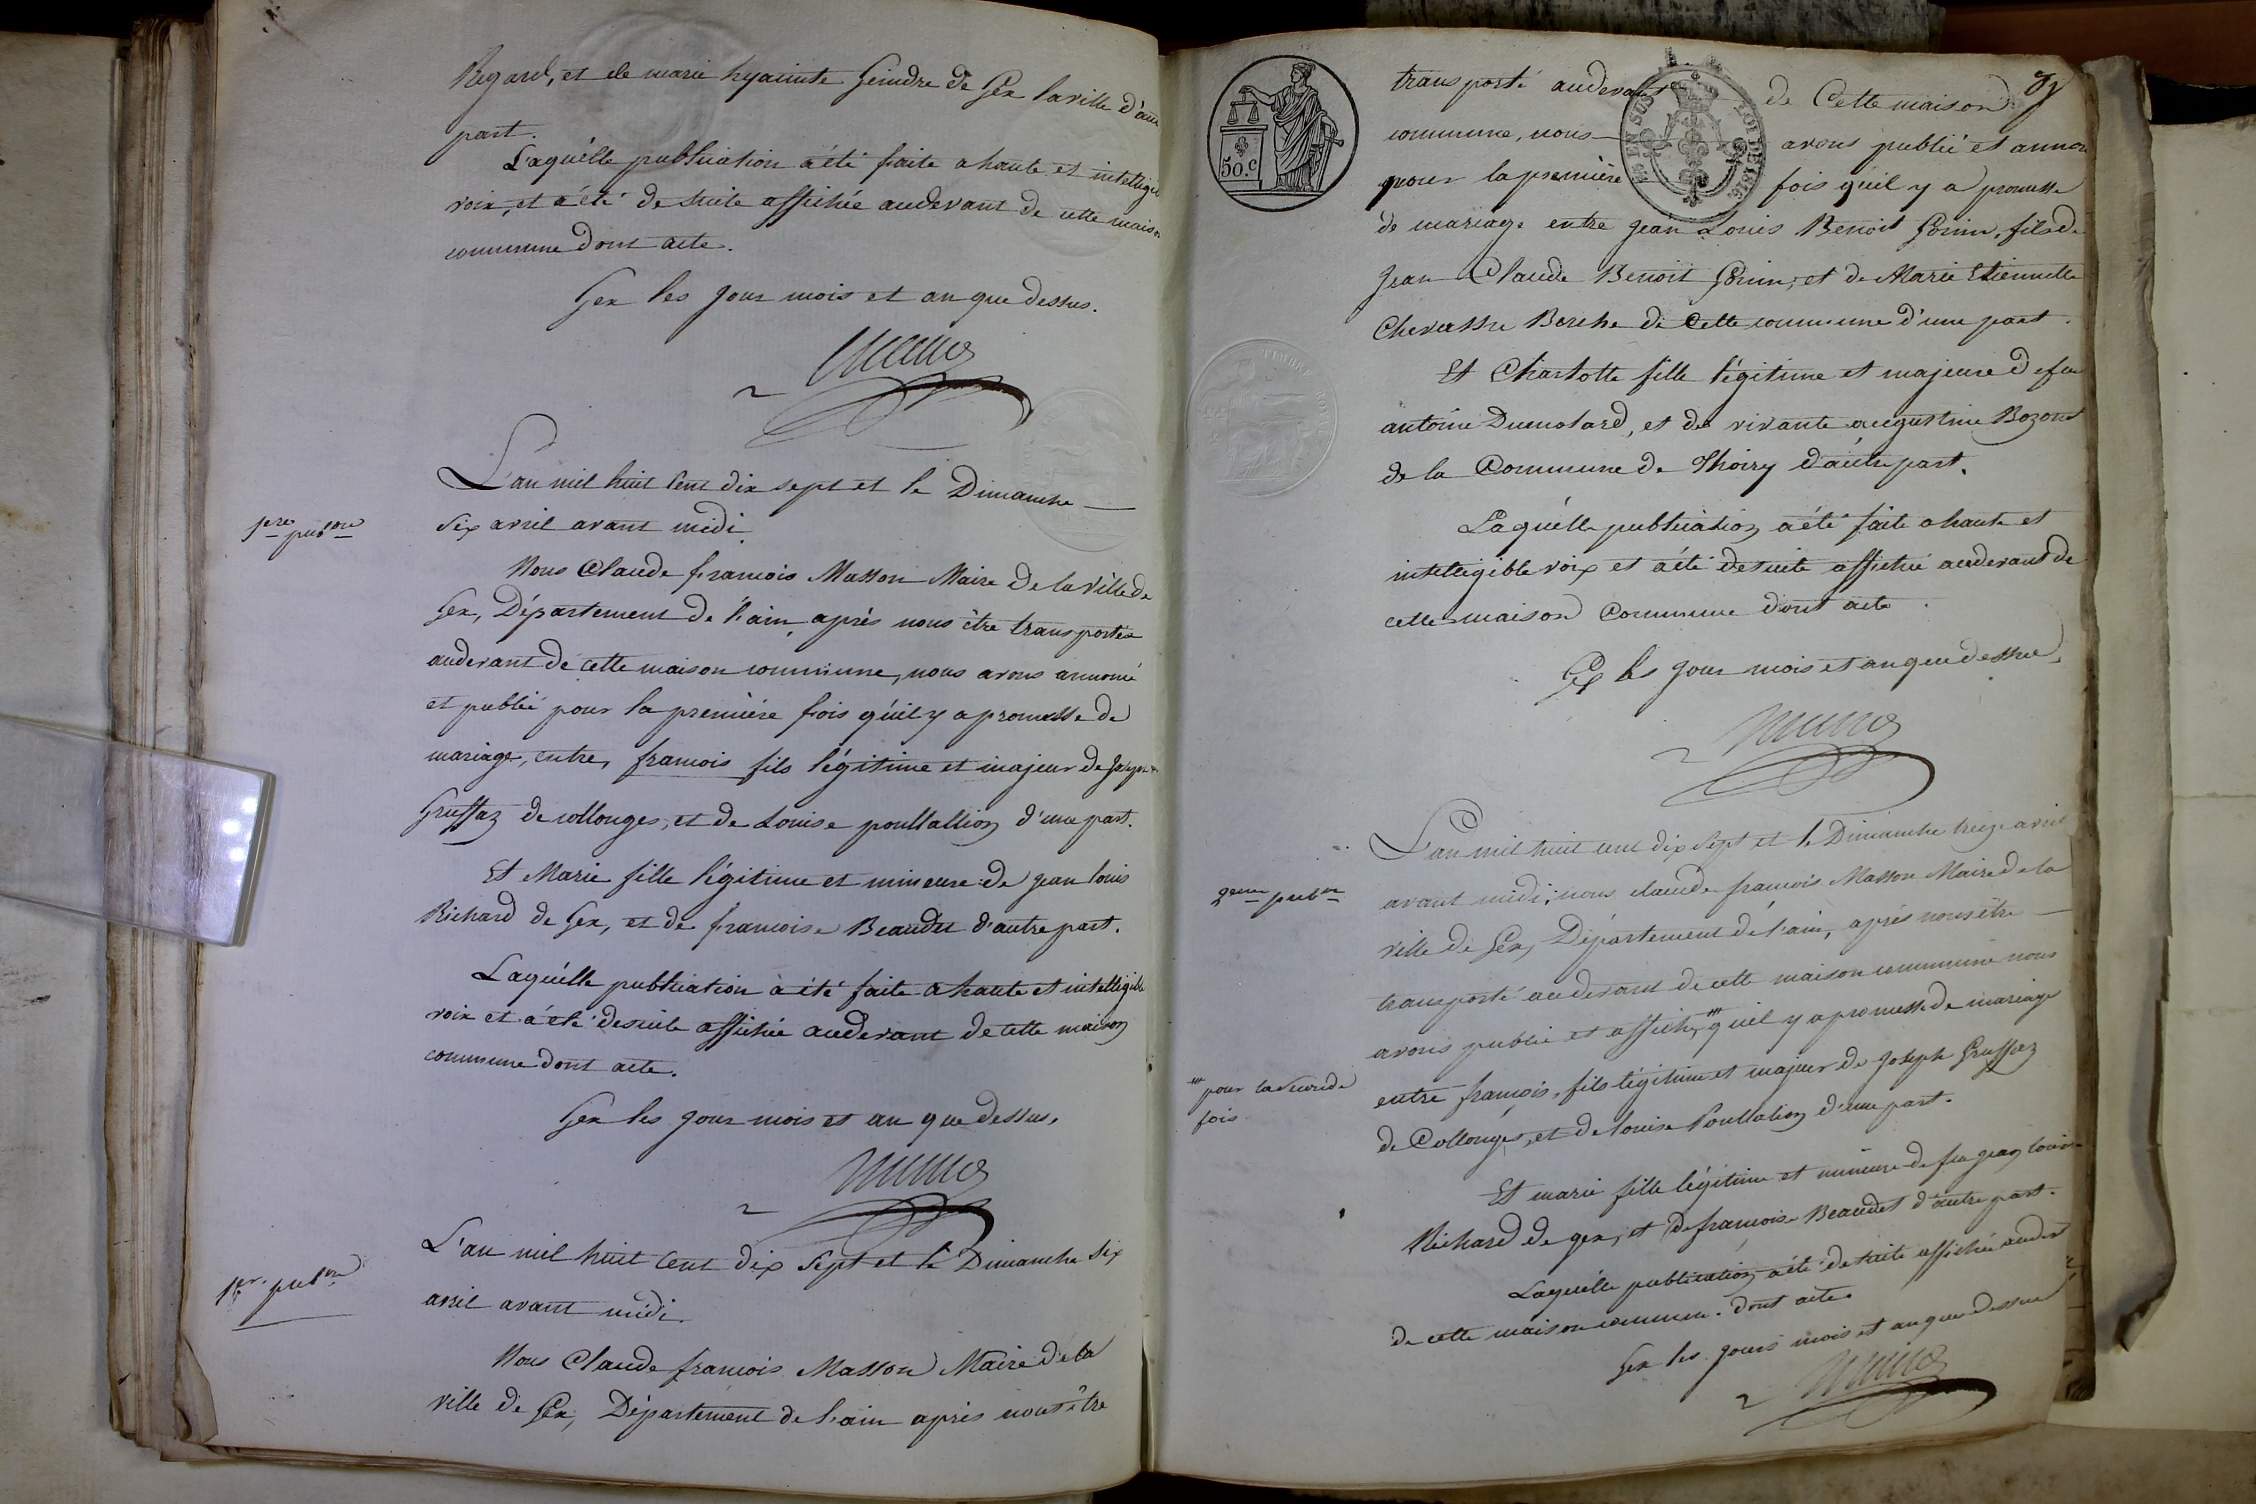 Regard, et de marie hyacinte Geindre de Gex la ville d'autre
part.
Laquélle publication a été faite a haute et intelligible
voix, et a été de suite affichée audevant de cette maison
commune dont acte.
Gex les jour mois et an que dessus.
L'an mil huit Cent dix sept et le Dimanche
1re pubon
six avril avant midi.
Nous Claude francois Masson Maire de la ville de
Gex, Département de l'ain, après nous être transportés
audevant de cette maison commune, nous avons annoncé
et publié pour la première fois qu'il y a promesse de
mariage, entre, francois fils légitime et majeur de Joseph
Gruffaz de collonges, et de Louise poultallion d'une part.
Et Marie fille légitime et mineure de jean louis
Richard de Gex, et de francoise Beaudet d'autre part.
Laquélle publication à été faite a haute et intelligible
voix et a été desuite affichée audevant de cette maison
commune dont acte.
Gex les jour mois et an que dessus.
L'an mil huit Cent dix sept et le Dimanche six
1er pubon
avril avant midi.
Nous Claude francois Masson Maire de la
ville de Gex, Département de l'ain après nous être
50.c
EN SUS LOI DE 1816
transporté audevant de Cette maison
commune, nous avons publié et annoncé
pour la première fois qu'il y a promesse
de mariage entre jean Louis Benoit Gonin, fils de
Jean Claude Benoit Gonin, et de Marie Etiennette
Chevassu Berche de Cette commune d'une part.
Et Charlotte fille légitime et majeure de feu
antoine Ducrotard, et de vivante augustine Bozon
de la Commune de Thoiry d'autre part.
Laquélle publication a été faite a haute et
intelligible voix et a été desuite affichée audevant de
cette maison Commune dont acte.
Gex les jour mois et an que dessus.
TIMBRE ROYAL
L'an mil huit cent dix sept et le Dimanche treize avril
2eme pubon
avant midi; nous claude francois Masson Maire de la
ville de Gex, Département de l'ain, après nous être
transporté audevant de cette maison commune nous
avons publié et affiché, qu'il y a promesse de mariage
pour la seconde
fois
entre françois, fils légitime et majeur de Joseph Gruffaz
de Collonges, et de louise Poultalion d'une part.
Et marie fille légitime et mineure de feu jean louis
Richard de gex, et de francoise Beaudet d'autre part.
Laquélle publication a été de suite affichée audevt
de cette maison commune. dont acte.
Gex les jours mois et an que dessus